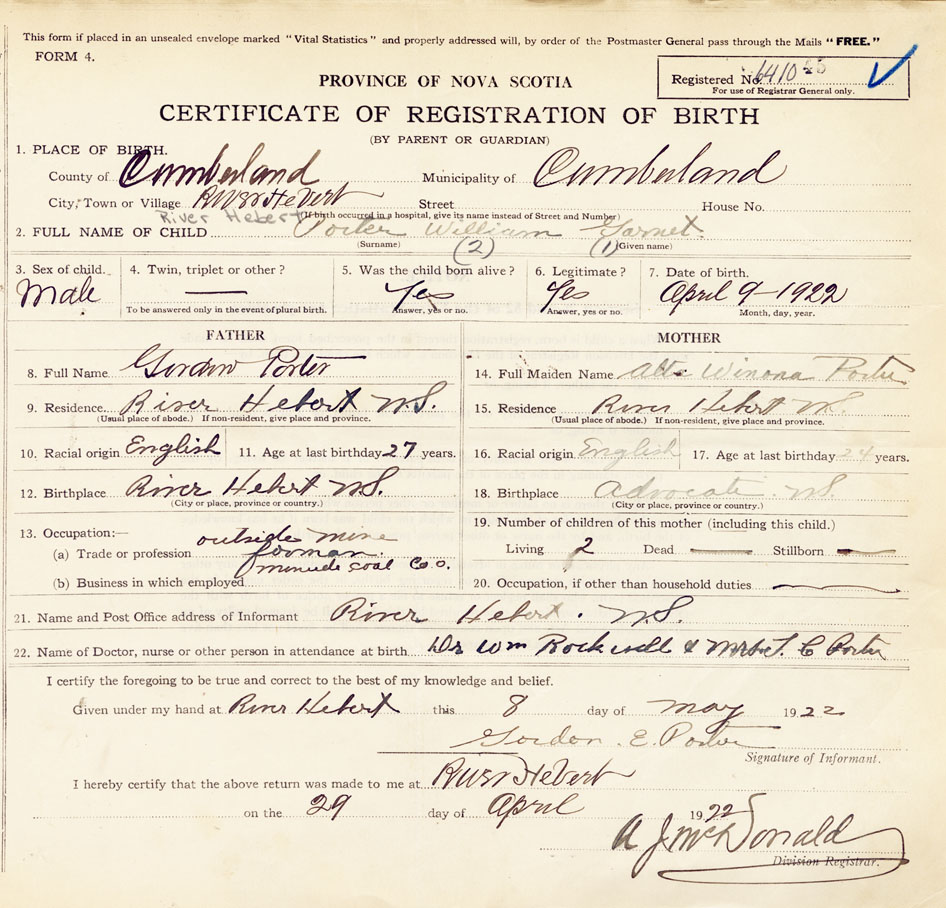 This form if placed in an unsealed envelope marked "Vital Statistics" and properly addressed will, by order of the Postmaster General pass through the Mails "FREE."
FORM 4.
PROVINCE OF NOVA SCOTIA
Registered No.
For use of Registrar General only.
CERTIFICATE OF REGISTRATION OF BIRTH
(BY PARENT OR GUARDIAN)
1. PLACE OF BIRTH.
County of Cumberland Municipality of Cumberland
City, Town or Village River Hebert Street House No.
River Hebert (If birth occurred in a hospital, give its name instead of Street and Number)
2. FULL NAME OF CHILD Porter William Garnet
(Surname) (2) (1) (Given name)
3. Sex of child. 4. Twin, triplet or other? 5. Was the child born alive? 6. Legitimate? 7. Date of birth.
Male Yes Yes April 9-1922
To be answered only in the event of plural birth. Answer, yes or no. Answer, yes or no. Month, day, year.
FATHER MOTHER
8. Full Name Gordon Porter 14. Full Maiden Name Winona Porter
9. Residence River Hebert N.S. 15. Residence River Hebert N.S.
(Usual place of abode.) If non-resident, give place and province. (Usual place of abode.) If non-resident, give place and province.
10. Racial origin English 11. Age at last birthday 27 years. 16. Racial origin English 17. Age at last birthday 24 years.
12. Birthplace River Hebert N.S. 18. Birthplace Advocate N.S.
(City or place, province or country.) (City or place, province or country.)
13. Occupation:— outside mine 19. Number of children of this mother (including this child.)
(a) Trade or profession forman. Living 2 Dead Stillborn
minude coal Co.
(b) Business in which employed 20. Occupation, if other than household duties
21. Name and Post Office address of Informant River Hebert. N.S.
22. Name of Doctor, nurse or other person in attendance at birth Dr Wm Rockwell & Mrs. C Porter
I certify the foregoing to be true and correct to the best of my knowledge and belief.
Given under my hand at River Hebert this 8 day of may 1922
Gordon. E. Porter
Signature of Informant.
I hereby certify that the above return was made to me at River Hebert
on the 29 day of April 1922
A J McDonald
Division Registrar.